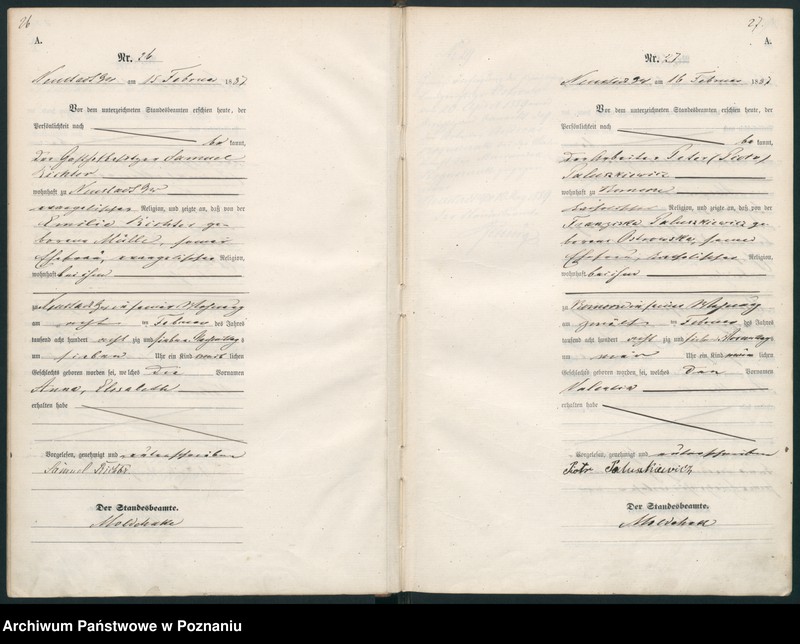 26
A.
Nr. 26
am 15 Februar 1887
Vor dem unterzeichneten Standesbeamten erschien heute, der
Persönlichkeit nach
be kannt,
der Samuel
Richter
wohnhaft zu Neustadt
evangelischer Religion, und zeigte an, daß von der
Emilie Richter ge-
borene seiner
Ehefrau, evangelischer Religion,
wohnhaft bei ihm
zu Neustadt in seiner Wohnung
am acht ten Februar des Jahres
tausend acht hundert acht zig und sieben
um sieben Uhr ein Kind weib lichen
Geschlechts geboren worden sei, welches die Vornamen
Anna, Elisabeth
erhalten habe
Vorgelesen, genehmigt und unterschrieben
Samuel Richter
Der Standesbeamte.
27
A.
Nr. 27
am 16 Februar 1887
Vor dem unterzeichneten Standesbeamten erschien heute, der
Persönlichkeit nach
be kannt,
der Arbeiter Peter (Piotr)
Paluszkiewicz
wohnhaft zu
katholischer Religion, und zeigte an, daß von der
Franziska Paluszkiewicz ge
borene Ostrowska, seiner
Ehefrau, katholischer Religion,
wohnhaft bei ihm
zu in seiner Wohnung
am zwölf ten Februar des Jahres
tausend acht hundert acht zig und sieben
um neun Uhr ein Kind männ lichen
Geschlechts geboren worden sei, welches den Vornamen
erhalten habe
Vorgelesen, genehmigt und unterschrieben
Piotr Paluszkiewicz
Der Standesbeamte.
Archiwum Państwowe w Poznaniu